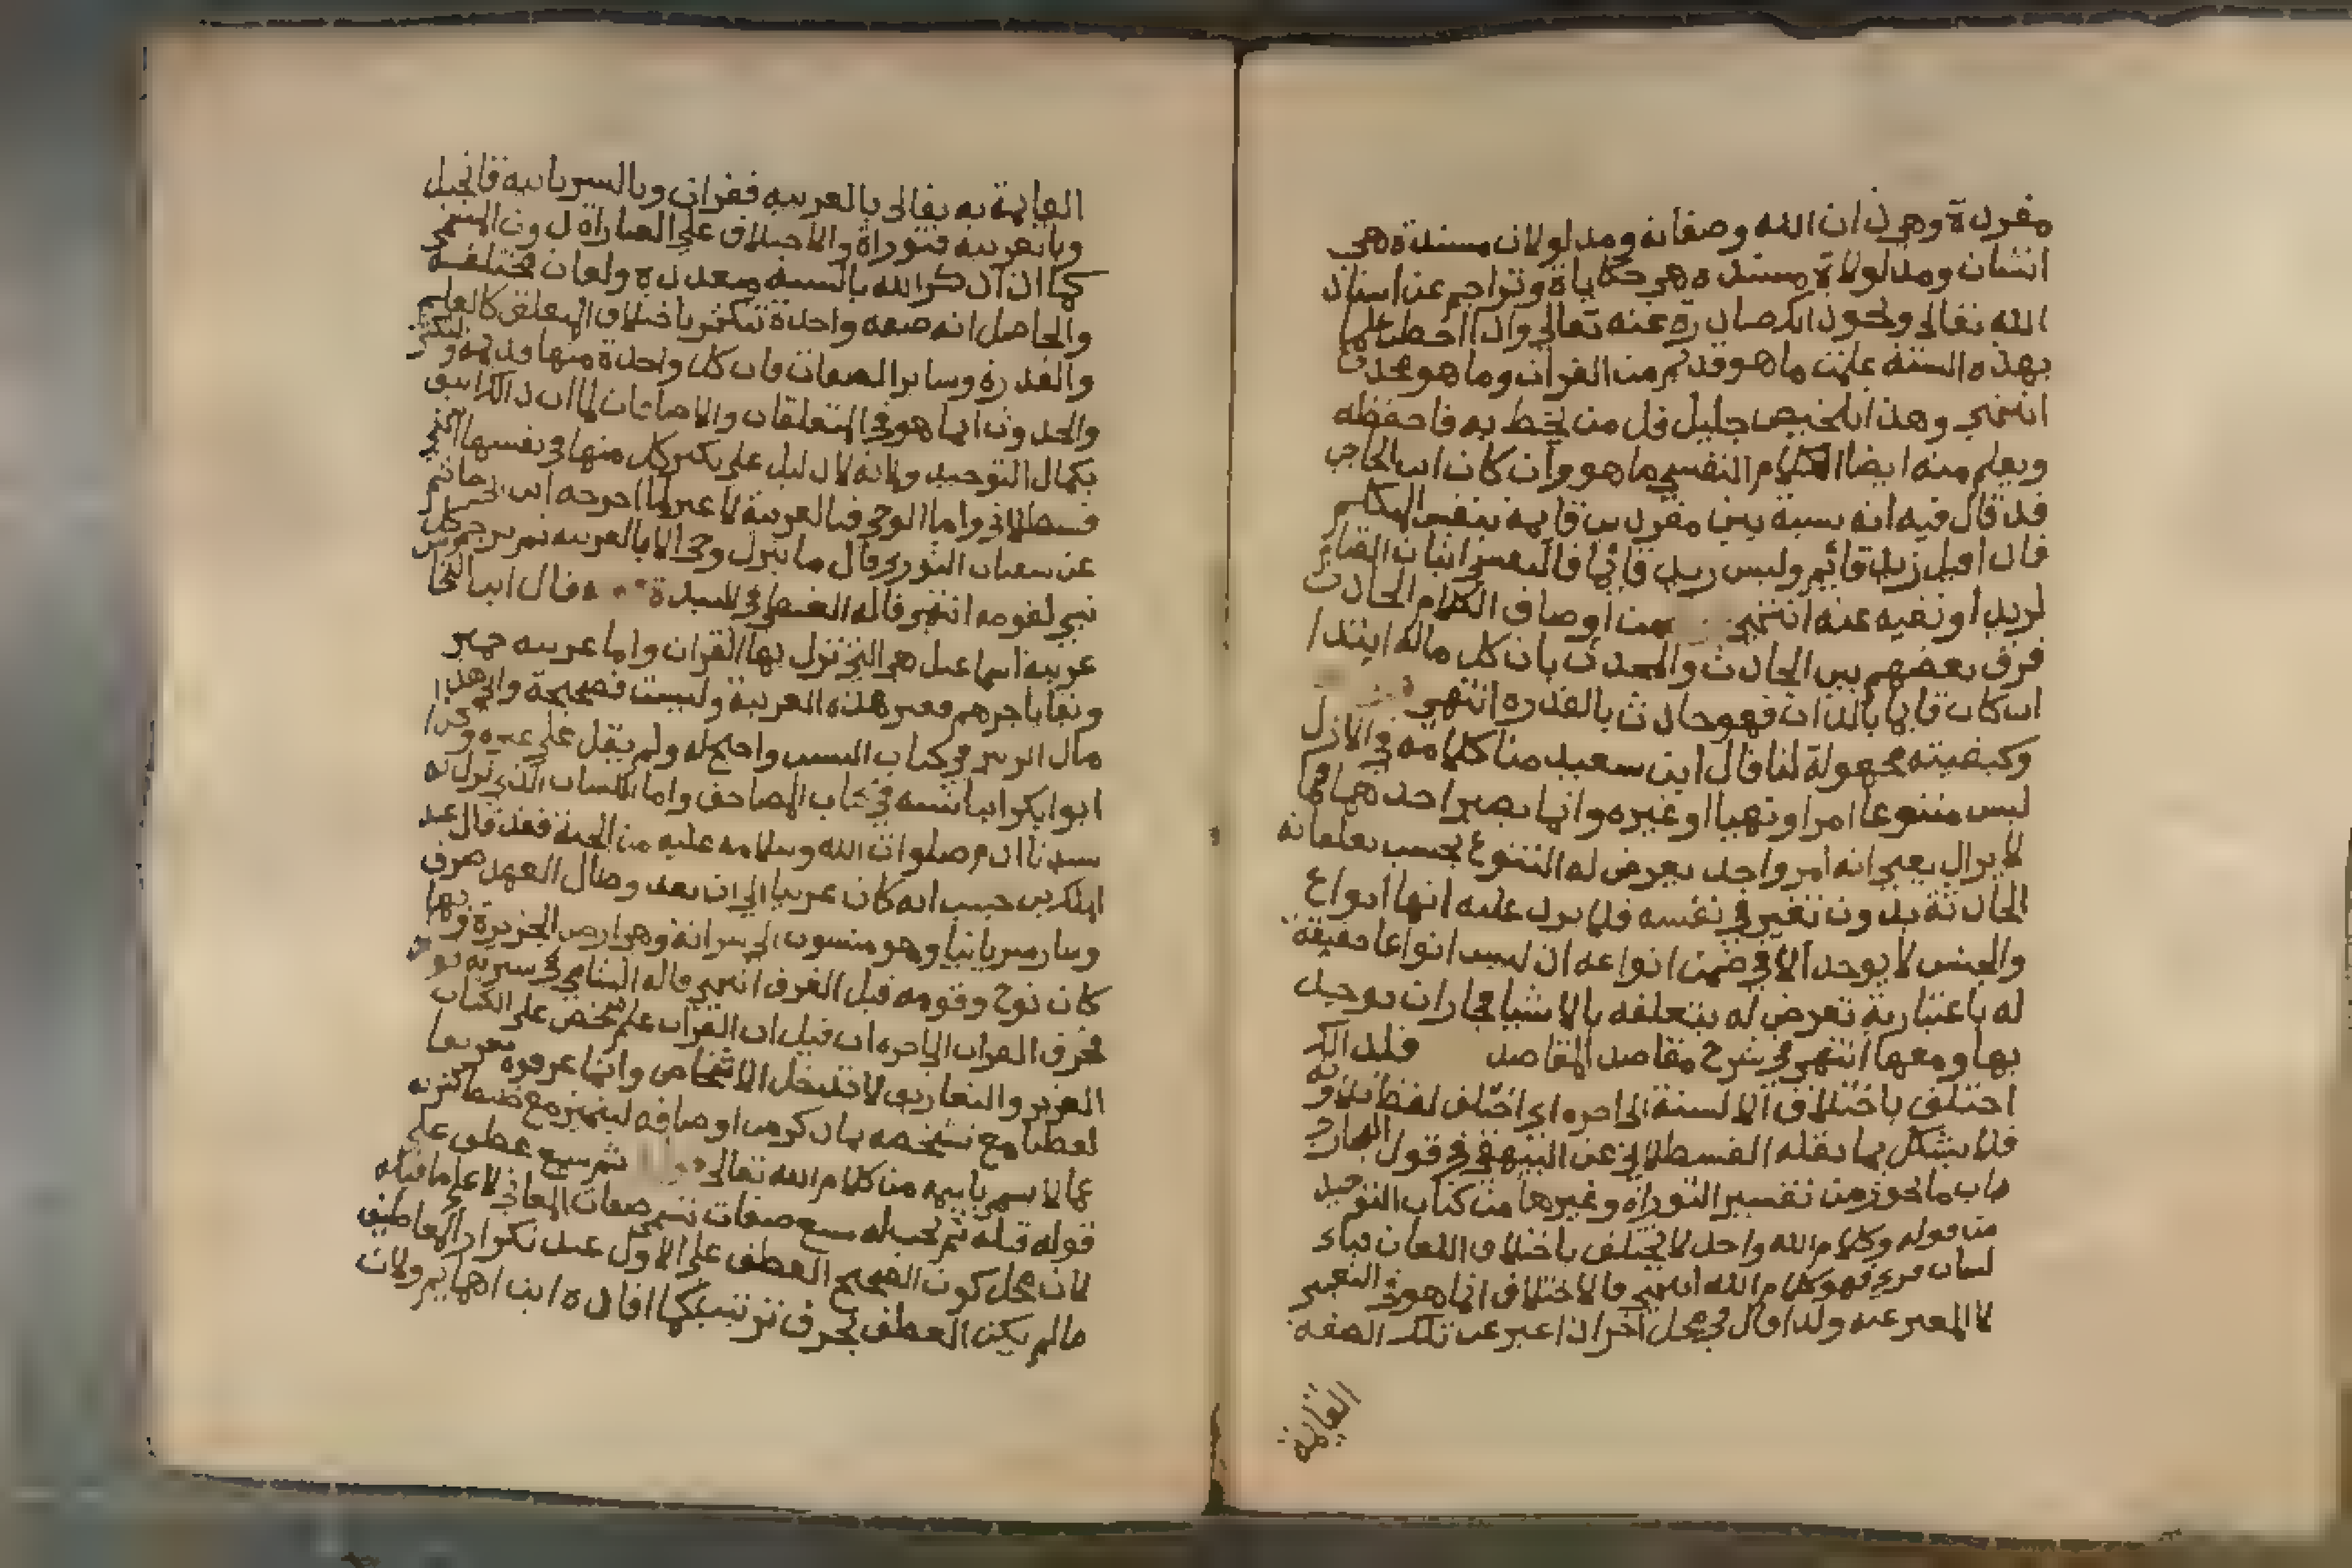 مفردة وهي ذات الله وصفاته ومدلولات مسندة هي
انشات ومدلولاة مسندة هي حكاياة وتراجم عن اسناد
الله تعالى ونحو ذلك صادرة عنه تعالى واذا احطت علما
بهذه الستة علمت ما هو قديم من القرآن وما هو محدث
انتهى وهذا تلخيص جليل قل من يحط به فاحفظه
ويعلم منه ايضا الكلام النفسي ما هو وان كان ابن الحاجب
قد قال فيه انه نسبة بين مفردين قايمة بنفس المتكلم
فان اقيل زيد قائم وليس زيد قائما فالنفس اثبات القيام
لزيد او نفيه عنه انتهى من اوصاف الكلام الحادث
فرق بعضهم بين الحادث والمحدث بان كل ماله ابتدا
ان كان قايما بالذات فهو حادث بالقدرة انتهى
وكيفيته مجهولة لنا قال ابن سعيد منا كلامه في الازل
ليس متنوعا امرا ونهيا او غيره وانما يصير احدهما فيما
لا يزال يعني انه امر واحد يعرض له التنوع بحسب تعلقاته
الحادثة بدون تغير في نفسه فلا يرد عليه انها انواع
والجنس لا يوجد الا في ضمن انواعه اذ ليست انواعا حقيقة
له باعتبارية تعرض له بتعلقه بالاشيا فجاز ان يوجد
بها ومعها انتهى شرح مقاصد المقاصد فلذلك
اختلف باختلاف الالسنة الى اخره اي اختلف لفظ تلاوته
فلا يشكل بما نقله القسطلاني عن البيهقي في قول البخاري
باب ما يجوز من تفسير التوراة وغيرها من كتاب التوحيد
من قوله وكلام الله واحد لا يختلف باختلاف اللغات فباي
لسان قرئ فهو كلام الله انتهى فالاختلاف انما هو في التعبير
لا المعبر عنه ولذا قال في محل اخر اذا عبر عن تلك الصفه
القايمة
القايمة به تعالى بالعربيه فقرآن وبالسريانيه فانجيل
وبالعربيه فتوراة والاختلاف على العباراة دون المسمى
كما اذا ذكر الله بالسنة متعددة ولغات مختلفة
والحاصل انه صفه واحدة تتكثر باختلاف المتعلق كالعلم
والقدرة وساير الصفات فان كل واحدة منها قديمة والتكثر
والحدوث انما هو في التعلقات والاضافات لما ان ذلك اليق
بكمال التوحيد ولانه لا دليل على تكثر كل منها في نفسها انتهى
قسطلاني واما الوحي فبالعربية لا غير لما اخرجه ابن ابي حاتم
عن سفيان الثوري قال ما نزل وحي الا بالعربيه ثم ترجم كل
نبي لقومه انتهى قاله القسطلاني قال ابن النحاس
عربية اسماعيل هي التي نزل بها القران واما عربيه حمير
وبقايا جرهم فغير هذه العربية وليست فصيحة والى هذا
مال الزبير في كتاب النسب واحتج له ولم يقل على غيره وكذا
ابو بكر في كتاب المصاحف واما اللسان الذي نزل به
سيدنا ادم صلوات الله وسلامه عليه من الجنة فقد قال عبد
الملك بن حبيب انه كان عربيا الى ان بعد وطال العهد حرف
وصار سريانيا وهو منسوب الى سرانة وهي ارض الجزيرة وبها
كان نوح وقومه قبل الغرق انتهى قاله الشامي في سيرته
العزيز والتعاريف لا تدخل الاشخاص وانما عرفوه تعريفا
لفظيا مع تشخصه بما ذكر من اوصافه ليتميز مع ضبط كثرته
عما لا يسمى باسمه من كلام الله تعالى ثم سبع عطف على
قوله قبله ثم تجب له سبع صفات تسمى صفات المعاني لا على ما قبله
لان محل كون الصحيح العطف على الاول عند تكرار المعاطيف
ما لم يكن العطف بحرف ترتيب كما افاده ابن الهمام ولان